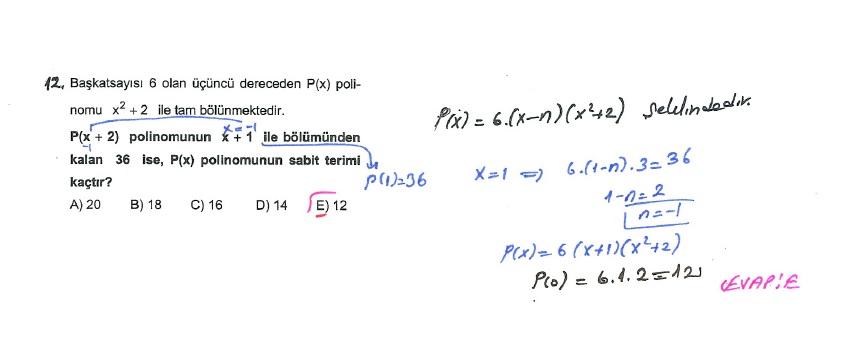 12. Başkatsayısı 6 olan üçüncü dereceden P(x) poli-
nomu x² + 2 ile tam bölünmektedir.
P(x + 2) polinomunun x + 1 ile bölümünden
x = -1
-1
kalan 36 ise, P(x) polinomunun sabit terimi
kaçtır?
P(1)=36
A) 20 B) 18 C) 16 D) 14 E) 12
P(x) = 6.(x-n)(x²+2) şeklindedir.
x=1 ⇒ 6.(1-n).3=36
1-n=2
n=-1
P(x)=6(x+1)(x²+2)
P(0) = 6.1.2=12
CEVAP:E